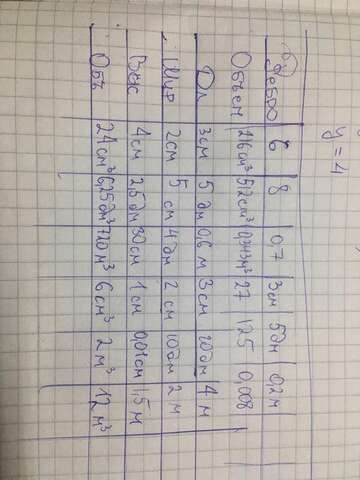 y = 4
Ребро 6 8 0,7 3см 5дм 0,2м
Объем 216см³ 512см³ 0,343м³ 27 125 0,008
Дл 3см 5 дм 0,6 м 3 см 20дм 4 м
Шир 2см 5 см 4 дм 2 см 10дм 2 м
Выс 4см 2,5дм 30см 1 см 0,01см 1,5 м
Объ 24см³ 6,25дм³ 720м³ 6 см³ 2 м³ 12 м³